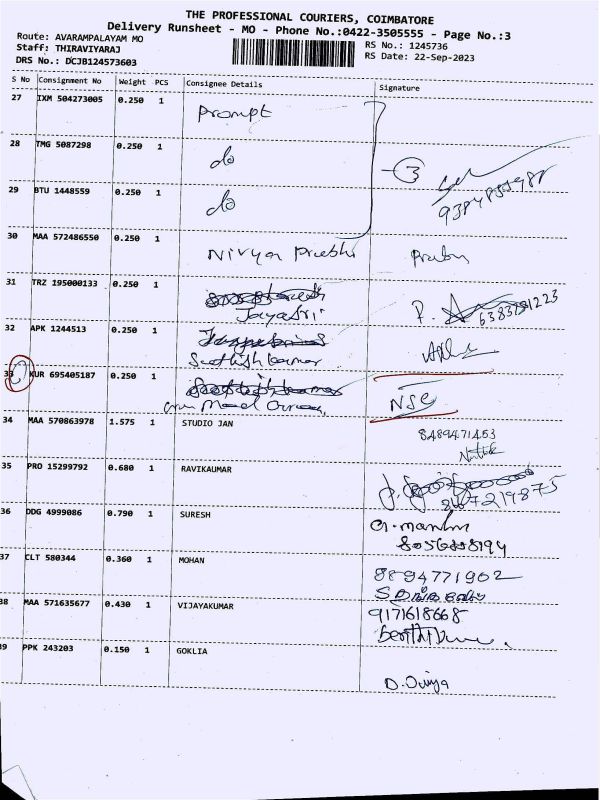 THE PROFESSIONAL COURIERS, COIMBATORE
Delivery Runsheet - MO - Phone No.:0422-3505555 - Page No.:3
Route: AVARAMPALAYAM MO
Staff: THIRAVIYARAJ
DRS No.: DCJB124573603
RS No.: 1245736
RS Date: 22-Sep-2023
S No Consignment No Weight PCS Consignee Details Signature
27 IXM 504273005 0.250 1 Prompt
28 TMG 5087298 0.250 1 do
3
29 BTU 1448559 0.250 1 do
30 MAA 572486550 0.250 1 Nivya Prabhu Prabu
31 TRZ 195000133 0.250 1
Jayasri
32 APK 1244513 0.250 1
Sathish kumar
33 KUR 695405187 0.250 1
NSC
34 MAA 570863978 1.575 1 STUDIO JAN
8489471453
35 PRO 15299792 0.680 1 RAVIKAUMAR
8667219875
36 DDG 4999086 0.790 1 SURESH
37 CLT 580344 0.360 1 MOHAN 8894771902
38 MAA 571635677 0.430 1 VIJAYAKUMAR 9171618668
39 PPK 243203 0.150 1 GOKLIA